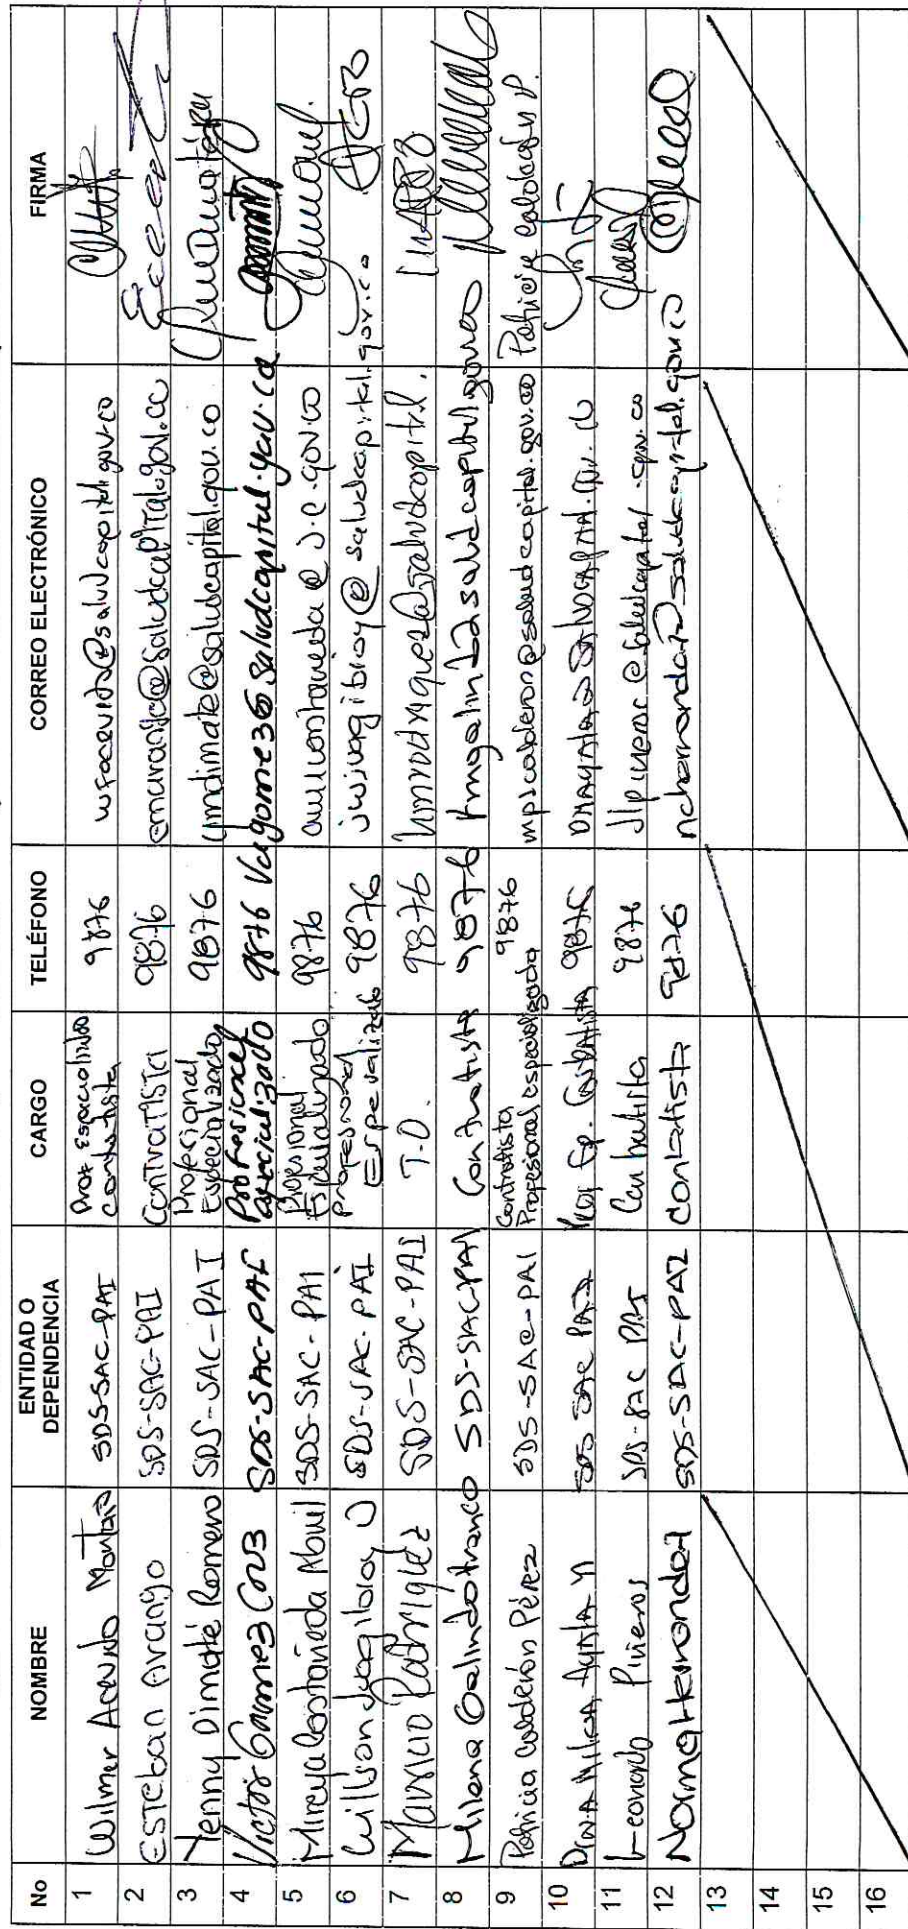 No NOMBRE ENTIDAD O DEPENDENCIA CARGO TELÉFONO CORREO ELECTRÓNICO FIRMA
1 Wilmer Acevedo SDS-SAC-PAI Prof Especializado contratista 9876 wfacevedo@saludcapital.gov.co
2 ESTeban Arango SDS-SAC-PAI ContraTISTa 9876 emarango@saludcapiTal.gov.co
3 Yenny Dimaté Romero SDS-SAC-PAI Profesional Especializado 9876 ymdimate@saludcapital.gov.co
4 Victor Gamez SDS-SAC-PAI Profesional especializado 9876 saludcapital.gov.co
5 Mireya Castañeda Abril SDS-SAC-PAI Profesional Especializado 9876
6 Wilson Jagibioy J SDS-SAC-PAI Profesional Especializado 9876 jwjuagibioy@saludcapital.gov.co
7 Mauricio Rodriguez SDS-SAC-PAI T.O. 9876
8 Milena Galindo Franco SDS-SAC-PAI Contratista 9876
9 Patricia Calderón Pérez SDS-SAC-PAI Contratista Profesional especializada 9876 mpscalderon@saludcapital.gov.co Patricia Calderón P.
10 SDS SAC PAI Prof Esp. Contratista 9876
11 Leonardo Piñeros SDS-SAC PAI Contratista 9876 saludcapital.gov.co
12 Norma Hernandez SDS-SAC-PAI contratista 9876
13
14
15
16